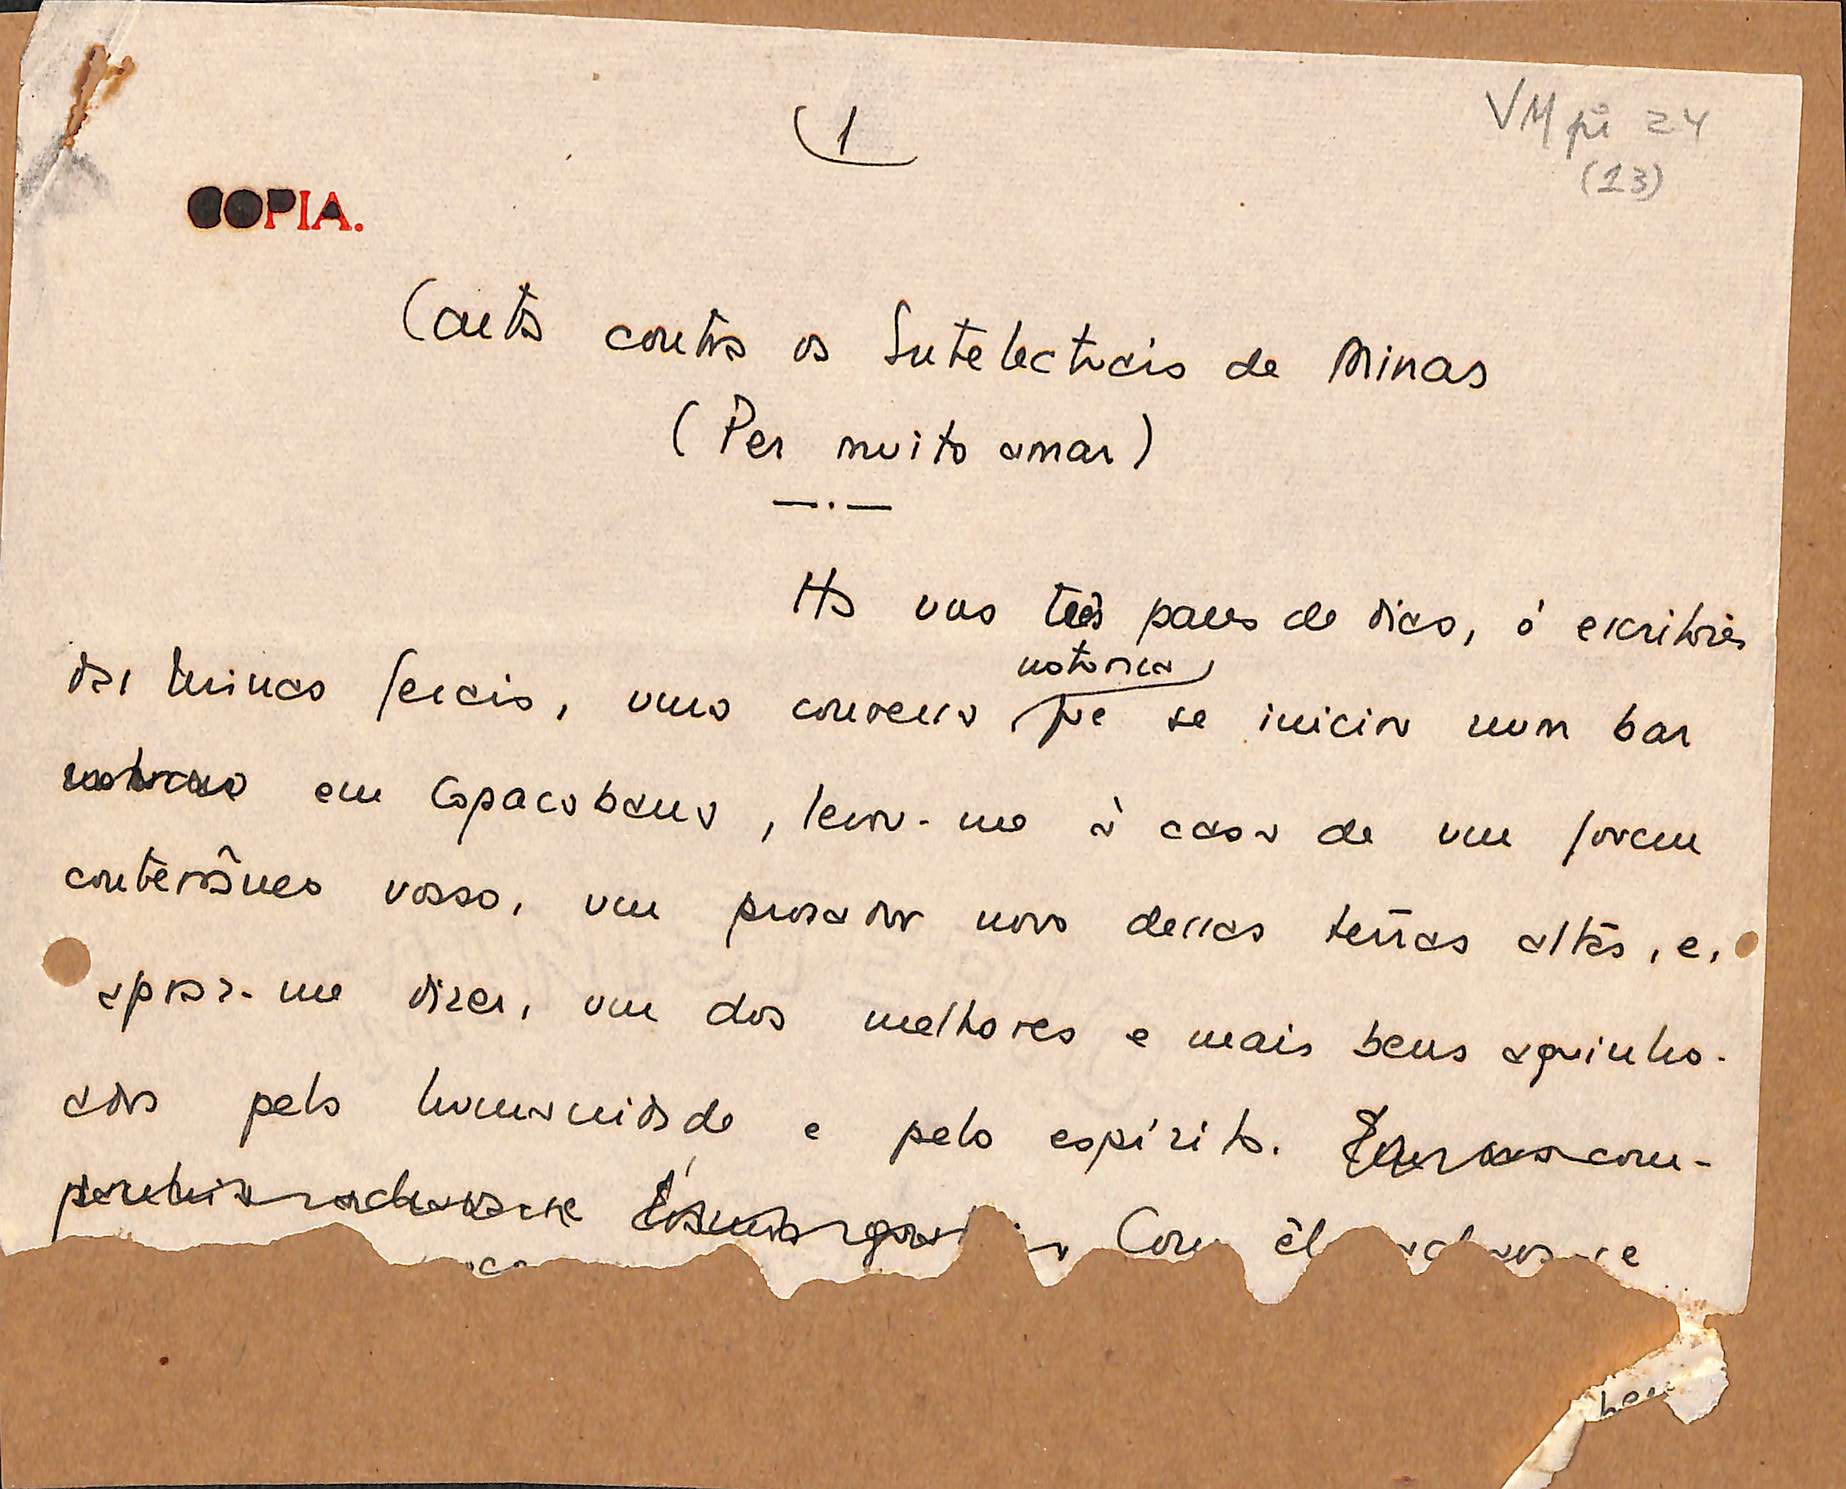 1
VM pi 24
(13)
COPIA.
Carta contra os Intelectuais de Minas
(Per muito amar)
Há uns três pares de dias, ó escritores
das Minas Gerais, uma conversa noturna que se iniciou num bar
em Copacabana, levou-me à casa de um jovem
conterrâneo vosso, um prosador novo dessas terras altas, e,
apraz-me dizer, um dos melhores e mais bens aquinho-
ados pela humanidade e pelo espírito. com-
Com